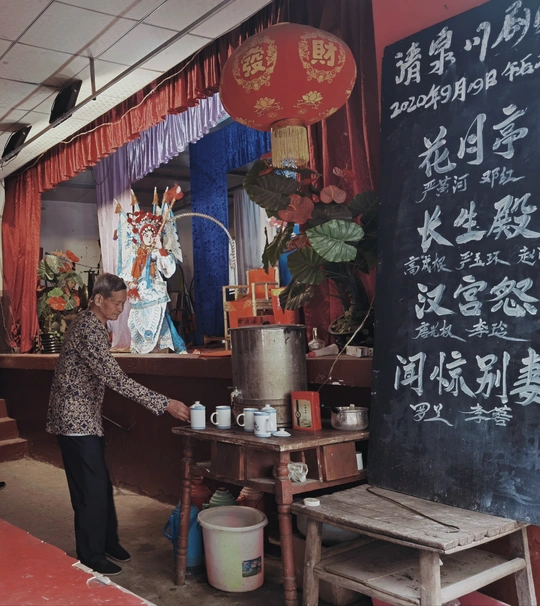 發財
清泉川剧
2020年9月19日 午后
花月亭
严黄河 邓红
长生殿
高茂根 严玉环 赵
汉宫怨
李玲
闻惊别妻
罗 李蓉